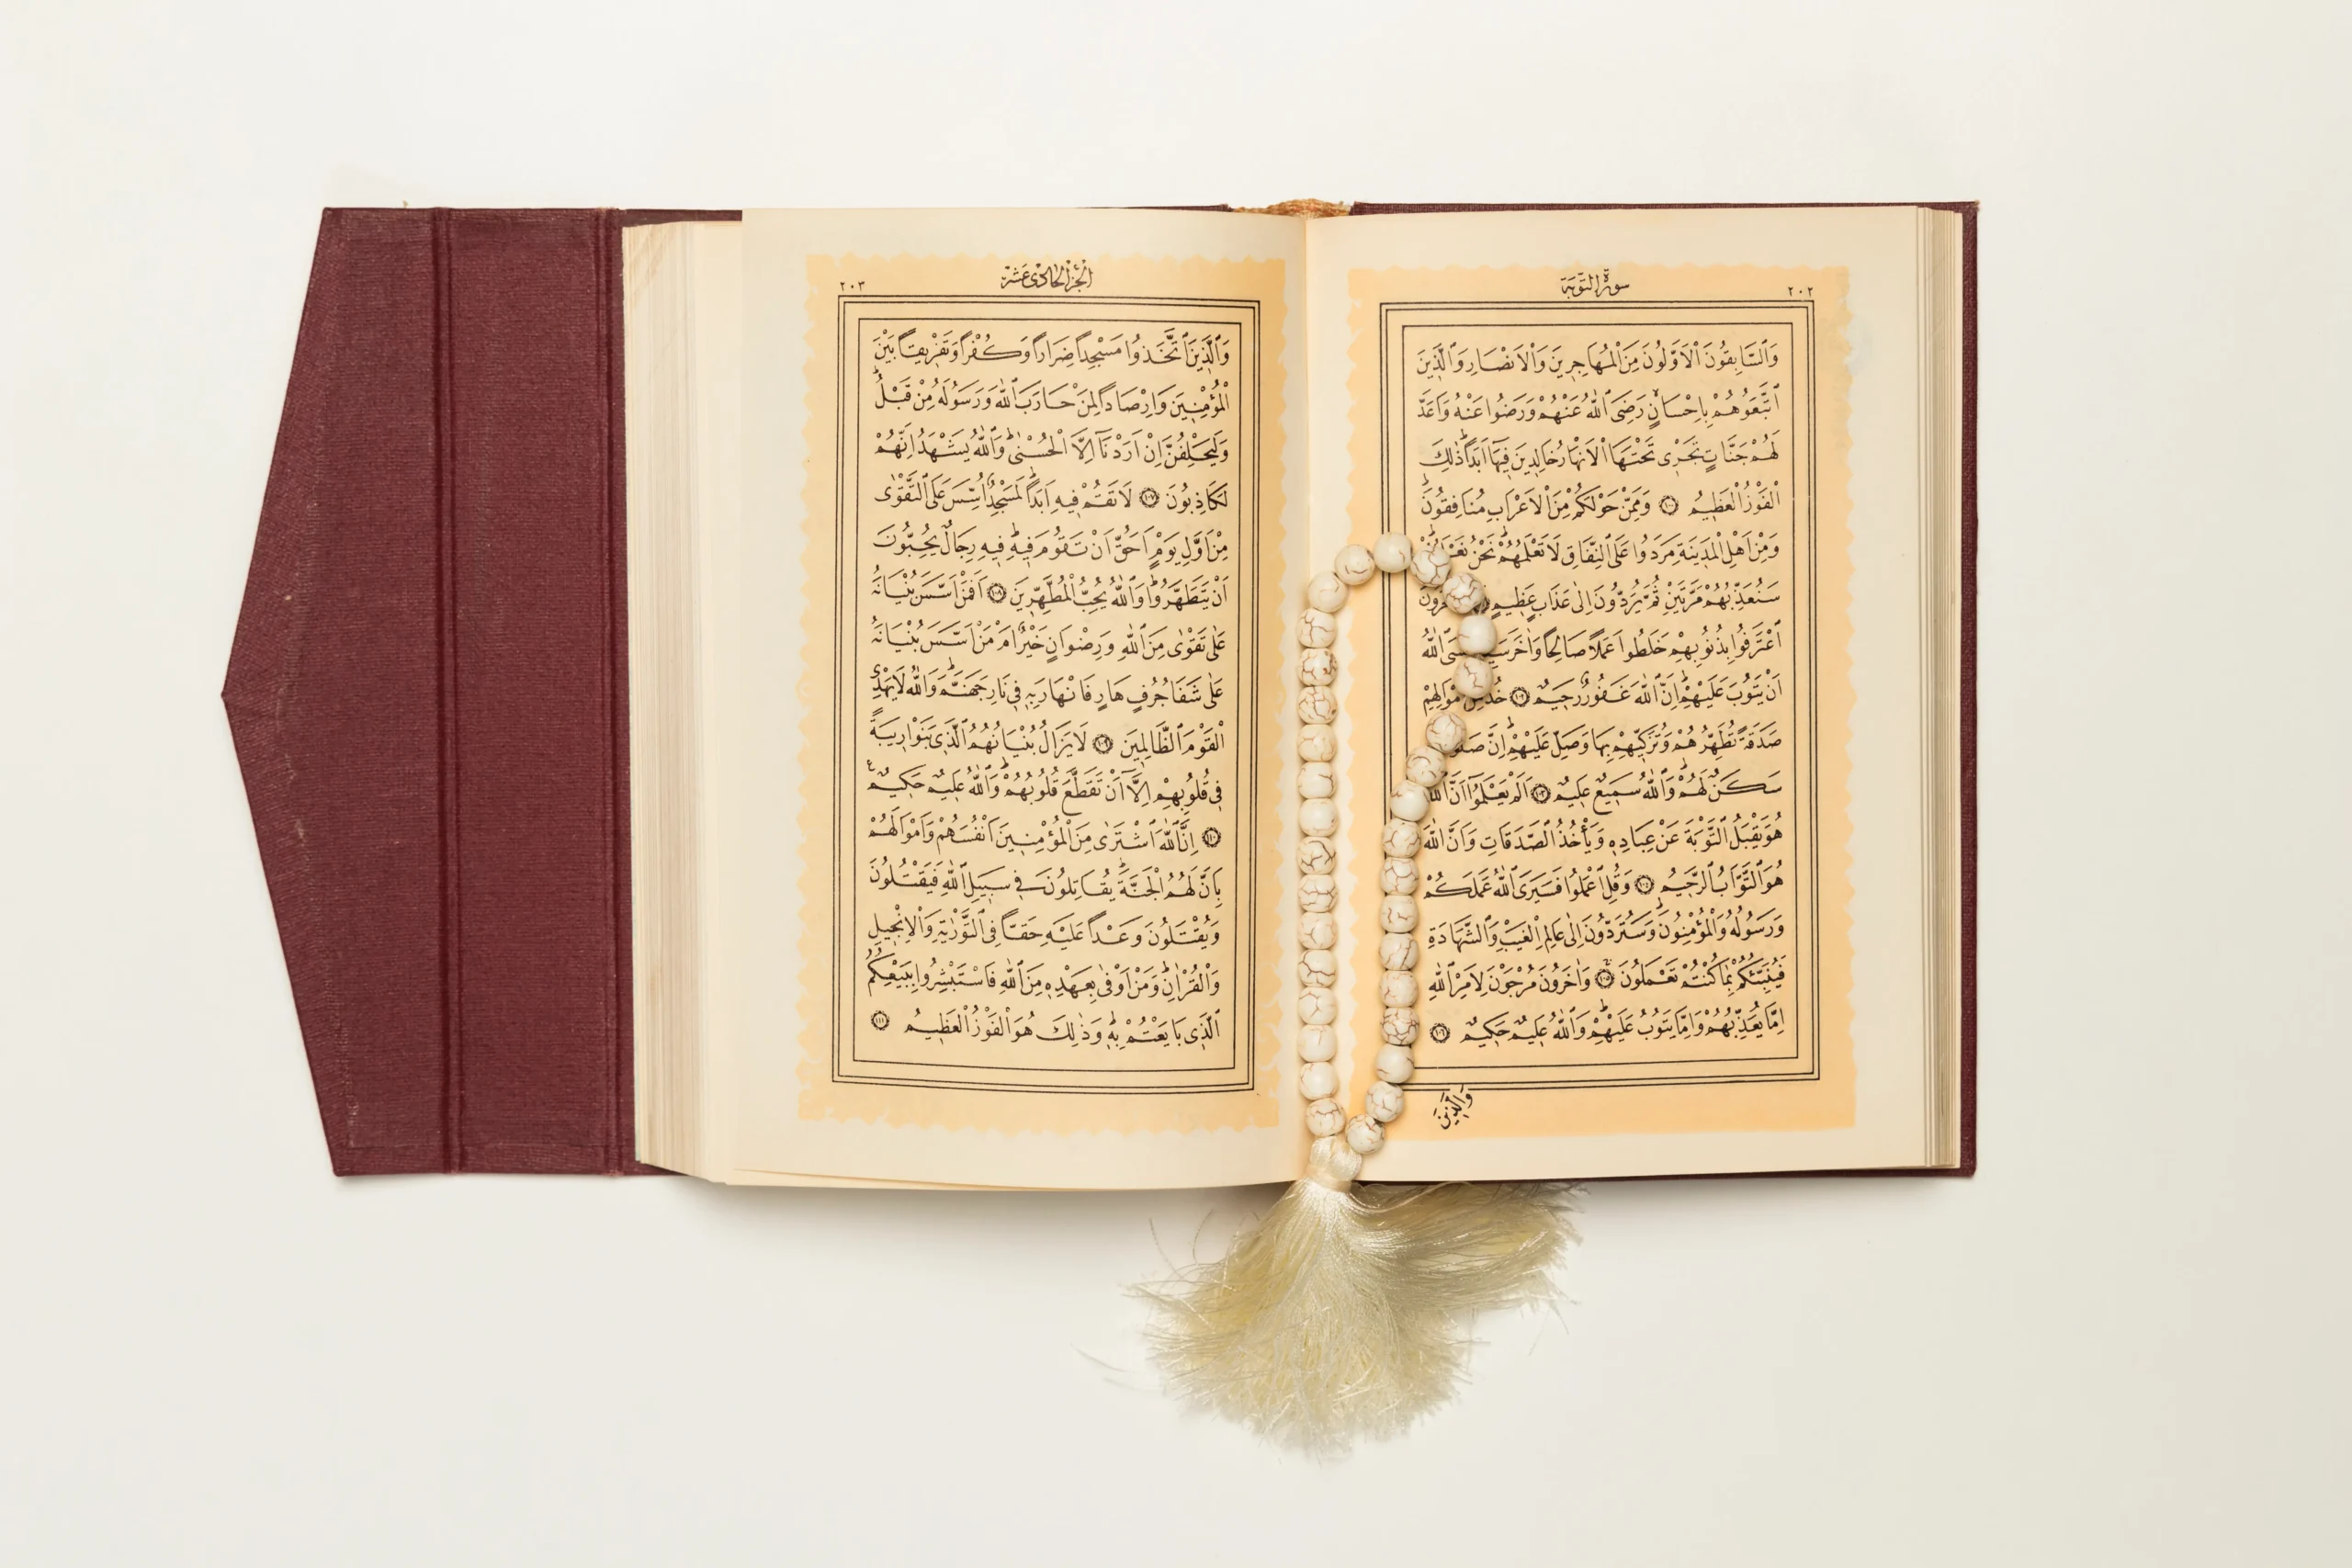 ٢٠٢
سورة التوبة
وَالسَّابِقُونَ الْاَوَّلُونَ مِنَ الْمُهَاجِرِينَ وَالْاَنْصَارِ وَالَّذِينَ
اتَّبَعُوهُمْ بِاِحْسَانٍ رَضِىَ اللّٰهُ عَنْهُمْ وَرَضُوا عَنْهُ وَاَعَدَّ
لَهُمْ جَنَّاتٍ تَجْرِى تَحْتَهَا الْاَنْهَارُ خَالِدِينَ فِيهَا اَبَداً ذٰلِكَ
الْفَوْزُ الْعَظِيمُ ١٠٠ وَمِمَّنْ حَوْلَكُمْ مِنَ الْاَعْرَابِ مُنَافِقُونَ
وَمِنْ اَهْلِ الْمَدِينَةِ مَرَدُوا عَلَى النِّفَاقِ لَا تَعْلَمُهُمْ نَحْنُ
سَنُعَذِّبُهُمْ مَرَّتَيْنِ ثُمَّ يُرَدُّونَ اِلٰى عَذَابٍ عَظِيمٍ
اعْتَرَفُوا بِذُنُوبِهِمْ خَلَطُوا عَمَلاً صَالِحاً وَاٰخَرَ اللّٰهُ
اَنْ يَتُوبَ عَلَيْهِمْ اِنَّ اللّٰهَ غَفُورٌ رَحِيمٌ ١٠٢ خُذْ
صَدَقَةً تُطَهِّرُهُمْ وَتُزَكِّيهِمْ بِهَا وَصَلِّ عَلَيْهِمْ اِنَّ
سَكَنٌ لَهُمْ وَاللّٰهُ سَمِيعٌ عَلِيمٌ ١٠٣ اَلَمْ يَعْلَمُوا اَنَّ اللّٰهَ
هُوَ يَقْبَلُ التَّوْبَةَ عَنْ عِبَادِهِ وَيَأْخُذُ الصَّدَقَاتِ وَاَنَّ اللّٰهَ
هُوَ التَّوَّابُ الرَّحِيمُ ١٠٤ وَقُلِ اعْمَلُوا فَسَيَرَى اللّٰهُ عَمَلَكُمْ
وَرَسُولُهُ وَالْمُؤْمِنُونَ وَسَتُرَدُّونَ اِلٰى عَالِمِ الْغَيْبِ وَالشَّهَادَةِ
فَيُنَبِّئُكُمْ بِمَا كُنْتُمْ تَعْمَلُونَ ١٠٥ وَاٰخَرُونَ مُرْجَوْنَ لِاَمْرِ اللّٰهِ
اِمَّا يُعَذِّبُهُمْ وَاِمَّا يَتُوبُ عَلَيْهِمْ وَاللّٰهُ عَلِيمٌ حَكِيمٌ ١٠٦
وَالَّذِينَ
الجزء الحادى عشر
٢٠٣
وَالَّذِينَ اتَّخَذُوا مَسْجِداً ضِرَاراً وَكُفْراً وَتَفْرِيقاً بَيْنَ
الْمُؤْمِنِينَ وَاِرْصَاداً لِمَنْ حَارَبَ اللّٰهَ وَرَسُولَهُ مِنْ قَبْلُ
وَلَيَحْلِفُنَّ اِنْ اَرَدْنَا اِلَّا الْحُسْنٰى وَاللّٰهُ يَشْهَدُ اِنَّهُمْ
لَكَاذِبُونَ ١٠٧ لَا تَقُمْ فِيهِ اَبَداً لَمَسْجِدٌ اُسِّسَ عَلَى التَّقْوٰى
مِنْ اَوَّلِ يَوْمٍ اَحَقُّ اَنْ تَقُومَ فِيهِ فِيهِ رِجَالٌ يُحِبُّونَ
اَنْ يَتَطَهَّرُوا وَاللّٰهُ يُحِبُّ الْمُطَّهِّرِينَ ١٠٨ اَفَمَنْ اَسَّسَ بُنْيَانَهُ
عَلٰى تَقْوٰى مِنَ اللّٰهِ وَرِضْوَانٍ خَيْرٌ اَمْ مَنْ اَسَّسَ بُنْيَانَهُ
عَلٰى شَفَا جُرُفٍ هَارٍ فَانْهَارَ بِهِ فِى نَارِ جَهَنَّمَ وَاللّٰهُ لَا يَهْدِى
الْقَوْمَ الظَّالِمِينَ ١٠٩ لَا يَزَالُ بُنْيَانُهُمُ الَّذِى بَنَوْا رِيبَةً
فِى قُلُوبِهِمْ اِلَّا اَنْ تَقَطَّعَ قُلُوبُهُمْ وَاللّٰهُ عَلِيمٌ حَكِيمٌ ع
١١٠ اِنَّ اللّٰهَ اشْتَرٰى مِنَ الْمُؤْمِنِينَ اَنْفُسَهُمْ وَاَمْوَالَهُمْ
بِاَنَّ لَهُمُ الْجَنَّةَ يُقَاتِلُونَ فِى سَبِيلِ اللّٰهِ فَيَقْتُلُونَ
وَيُقْتَلُونَ وَعْداً عَلَيْهِ حَقاًّ فِى التَّوْرٰيةِ وَالْاِنْجِيلِ
وَالْقُرْاٰنِ وَمَنْ اَوْفٰى بِعَهْدِهِ مِنَ اللّٰهِ فَاسْتَبْشِرُوا بِبَيْعِكُمُ
الَّذِى بَايَعْتُمْ بِهِ وَذٰلِكَ هُوَ الْفَوْزُ الْعَظِيمُ ١١١